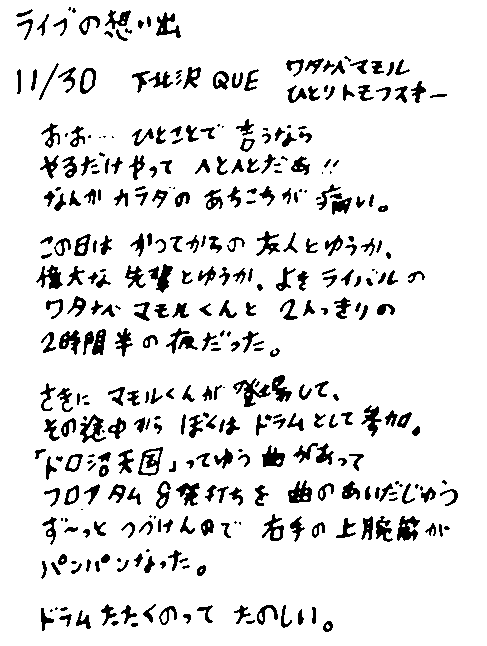 ライブの想い出
11/30 下北沢 QUE ワタナベマモル
ひとりトモフスキー
お・お… ひとことで 言うなら
やるだけやって へとへとだぁ!!
なんか カラダの あちこちが 痛い。
この日は かつてからの 友人とゆうか、
偉大な 先輩とゆうか、よきライバルの
ワタナベ マモルくんと 2人っきりの
2時間半の 夜だった。
さきに マモルくんが 登場して、
その途中から ぼくは ドラムとして 参加。
「ドロ沼天国」ってゆう 曲があって
フロアタム 8発打ちを 曲のあいだじゅう
ず〜っと つづけんので 右手の 上腕筋が
パンパンなった。
ドラムたたくのって たのしい。